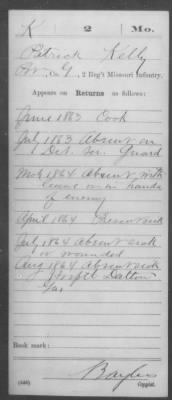 K 2 Mo.
Patrick Kelly
Co. G, 2 Reg't Missouri Infantry.
Appears on Returns as follows:
June 1863 Cook
July 1863 Absent on
Det. Ser. Guard
1864 Absent with
leave in hands
of enemy
April 1864 Present sick
July 1864 Absent sick
or wounded
Aug 1864 Absent sick
Hosptl Dalton
Ga
Book mark:
(546)
Copyist.